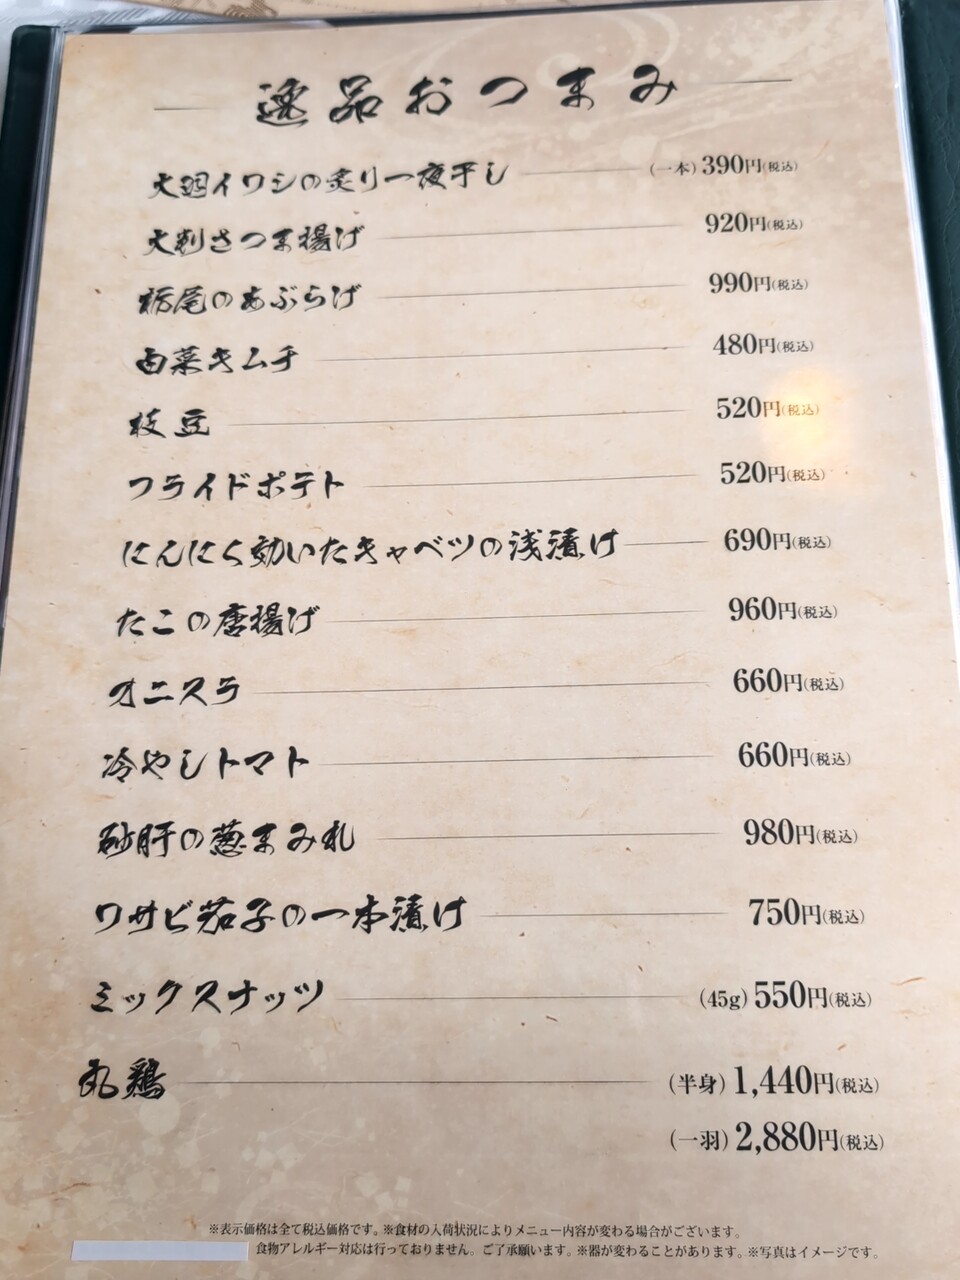 逸品おつまみ
大羽イワシの炙り一夜干し (一本) 390円(税込)
大判さつま揚げ 920円(税込)
栃尾のあぶらげ 990円(税込)
白菜キムチ 480円(税込)
枝豆 520円(税込)
フライドポテト 520円(税込)
にんにく効いたキャベツの浅漬け 690円(税込)
たこの唐揚げ 960円(税込)
オニスラ 660円(税込)
冷やしトマト 660円(税込)
砂肝の葱まみれ 980円(税込)
ワサビ茄子の一本漬け 750円(税込)
ミックスナッツ (45g) 550円(税込)
丸鶏 (半身) 1,440円(税込)
(一羽) 2,880円(税込)
※表示価格は全て税込価格です。※食材の入荷状況によりメニュー内容が変わる場合がございます。
食物アレルギー対応は行っておりません。ご了承願います。※器が変わることがあります。※写真はイメージです。